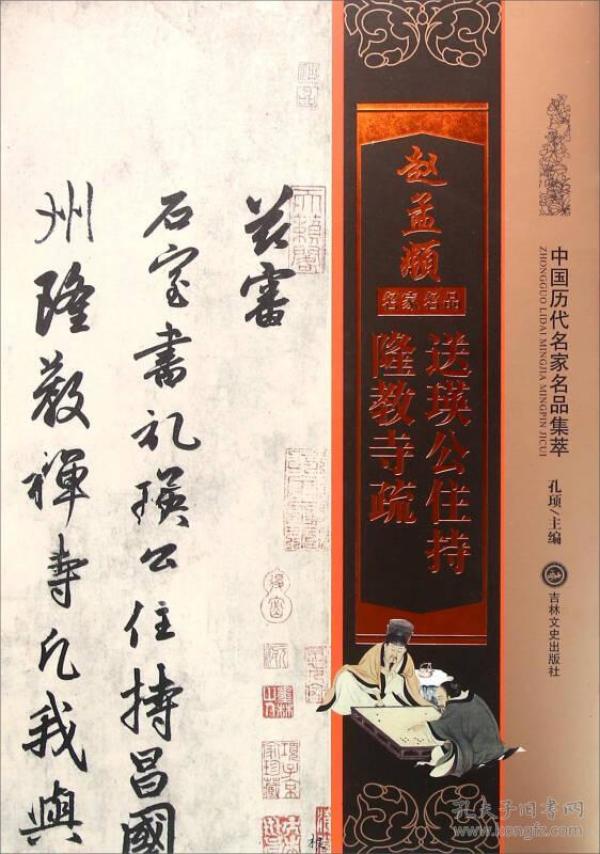 中国历代名家名品集萃
ZHONGGUO LIDAI MINGJIA MINGPIN JICUI
孔顼/主编
吉林文史出版社
赵孟頫
名家名品
送瑛公住持
隆教寺疏
兹審
石室書礼瑛公住持昌國
州隆教禅寺凡我與
孔夫子旧书网
www.kongfz.com